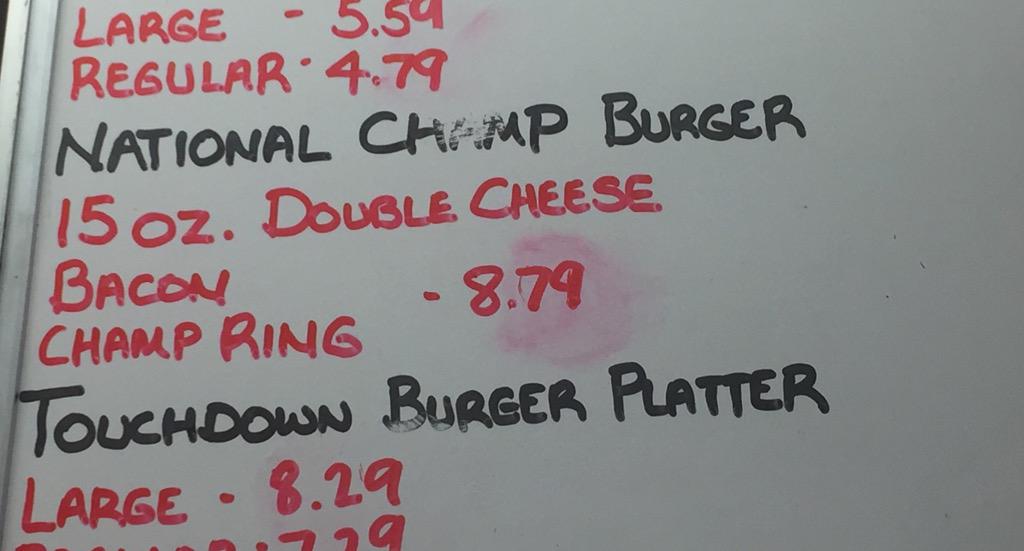 LARGE - 5.59
REGULAR - 4.79
NATIONAL CHAMP BURGER
15 OZ. DOUBLE CHEESE
BACON - 8.79
CHAMP RING
TOUCHDOWN BURGER PLATTER
LARGE - 8.29
REGULAR - 7.29